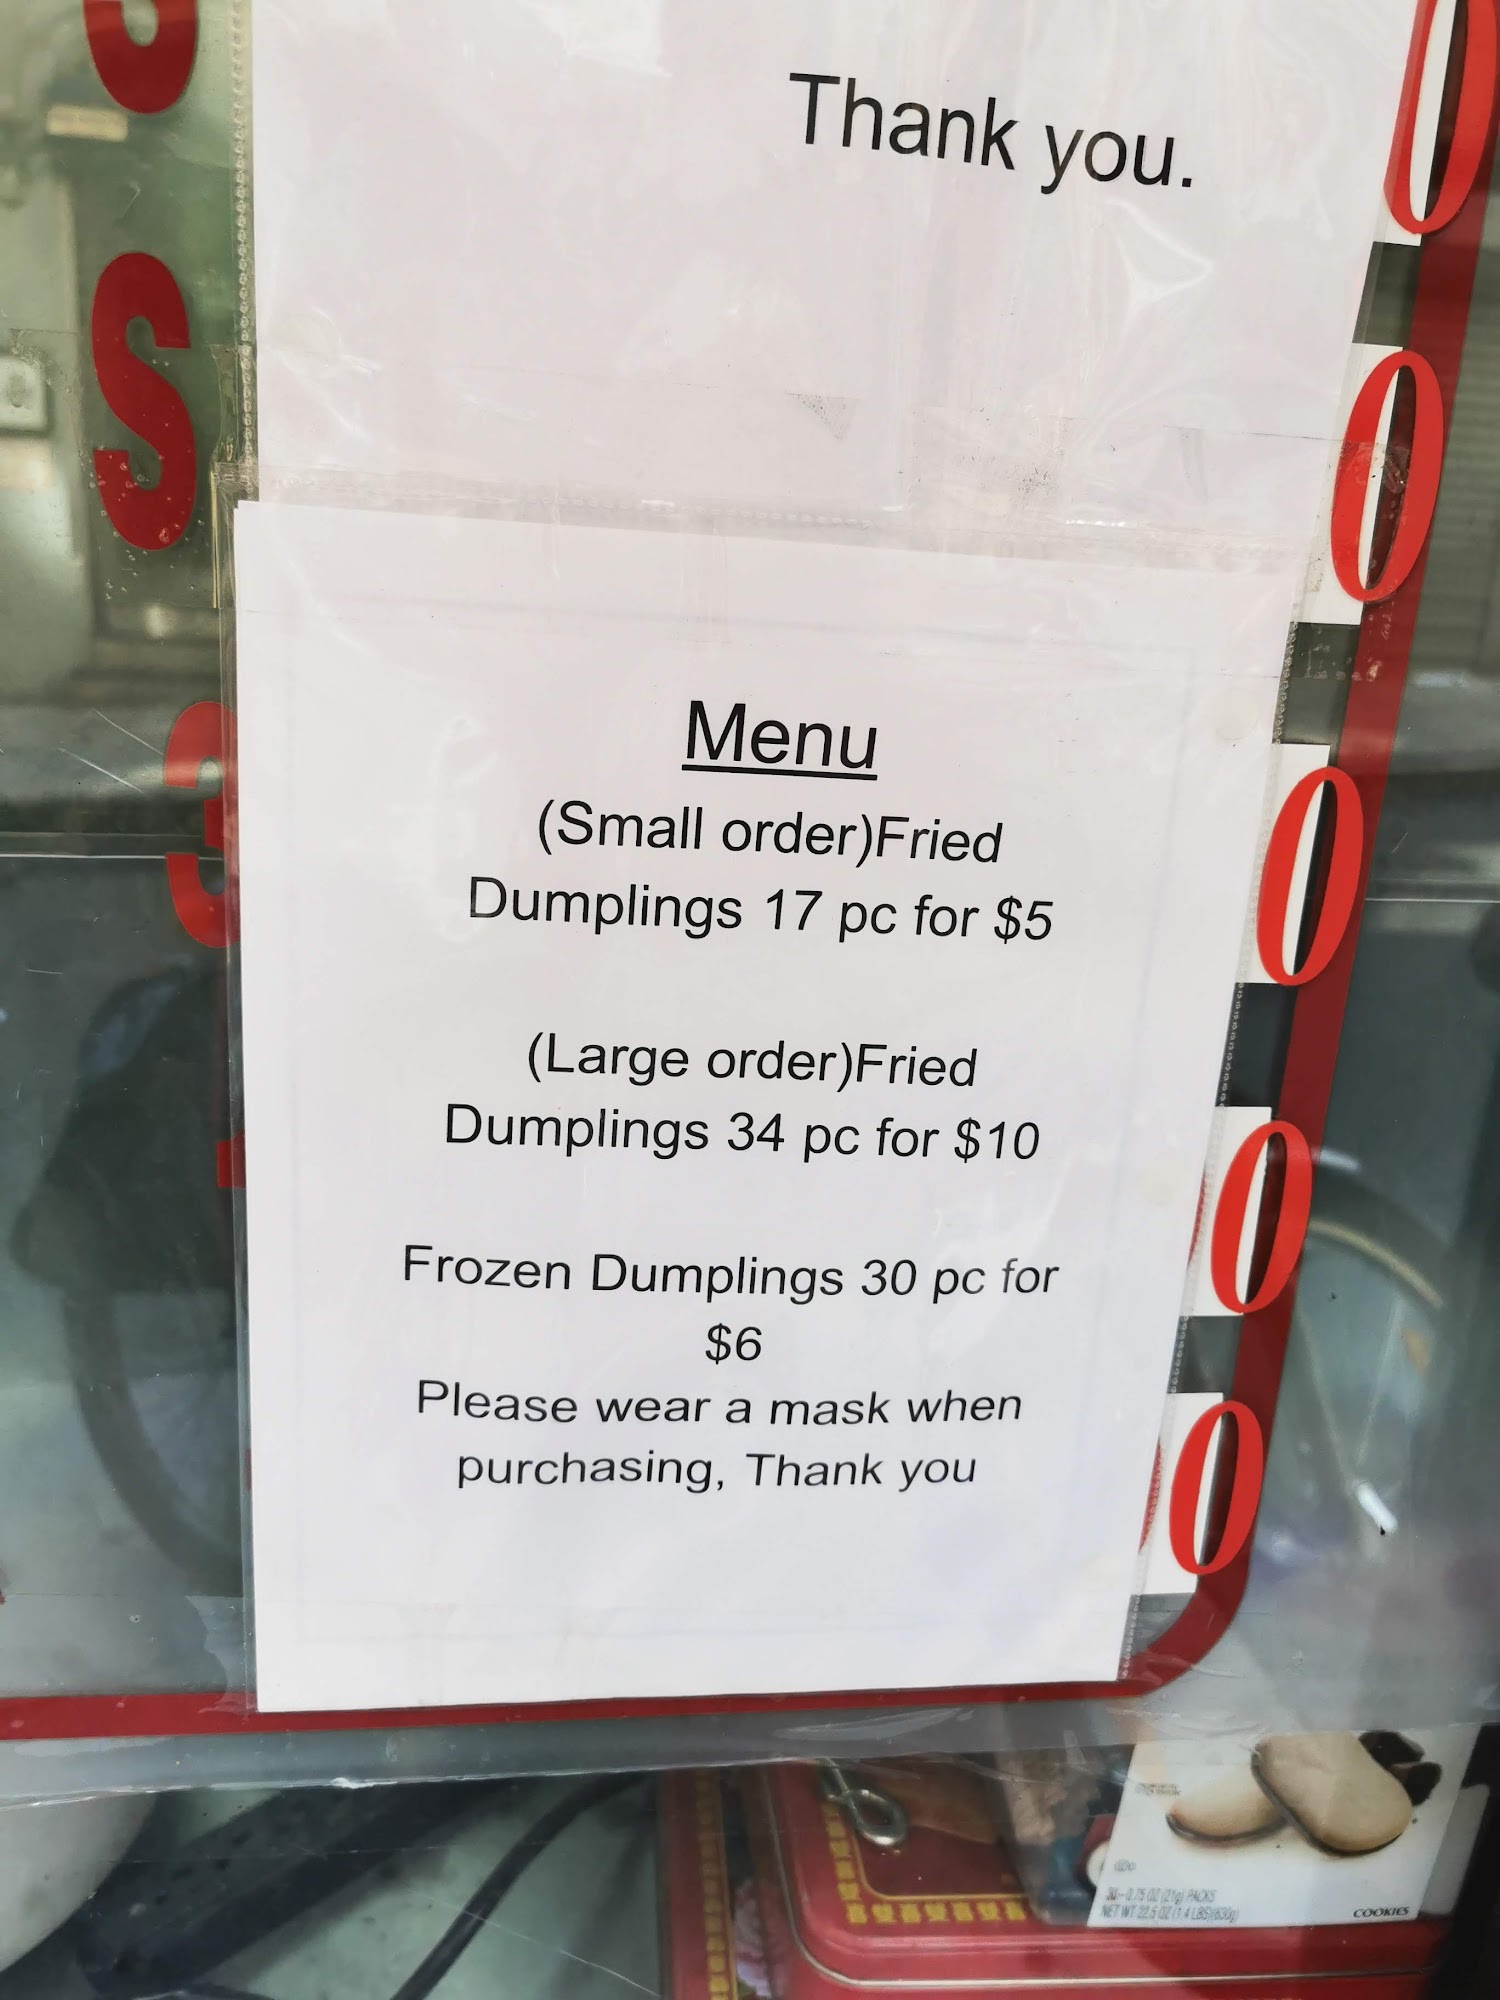 Thank you.
S
3
0
0
0
0
0
Menu
(Small order)Fried
Dumplings 17 pc for $5
(Large order)Fried
Dumplings 34 pc for $10
Frozen Dumplings 30 pc for
$6
Please wear a mask when
purchasing, Thank you
30-0.75 OZ (21g) PACKS
NET WT 22.5 OZ (1.4 LBS)(630g)
COOKIES